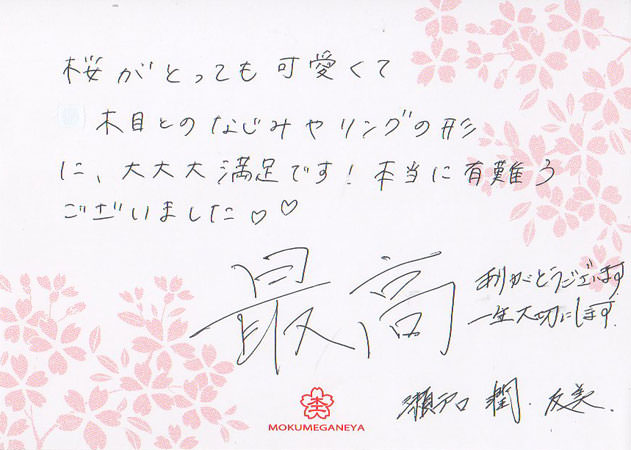 桜がとっても可愛くて
木目とのなじみやリングの形
に、大大大満足です！本当に有難う
ございました♡♡
最高
ありがとうございます
一生大切にします。
瀬戸口 潤. 友美.
MOKUMEGANEYA